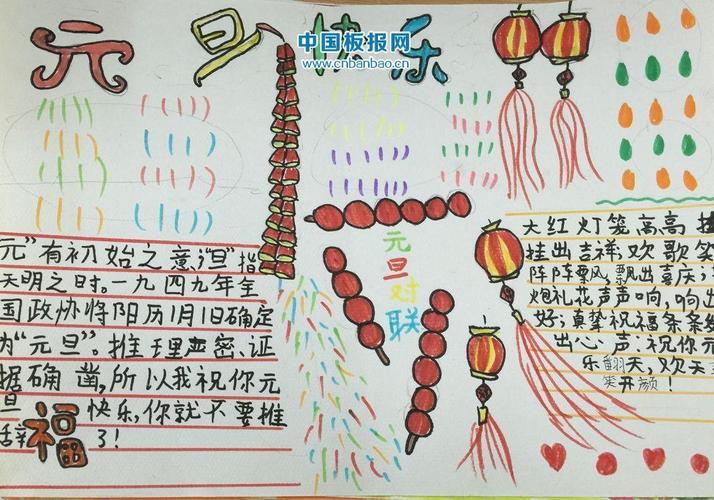 元旦快乐
中国板报网
www.cnbanbao.cn
元"有初始之意,"旦"指
天明之时。一九四九年全
国政协将阳历1月1日确定
为"元旦"。推理严密、证
据确凿,所以我祝你元
旦快乐,你就不要推
辞了!
福
元旦对联
大红灯笼高高挂
挂出吉祥,欢歌笑
阵阵飘风,飘出喜庆;
炮礼花声声响,响出
好;真挚祝福条条
出心声:祝你元
乐翻天,欢天
笑开颜!